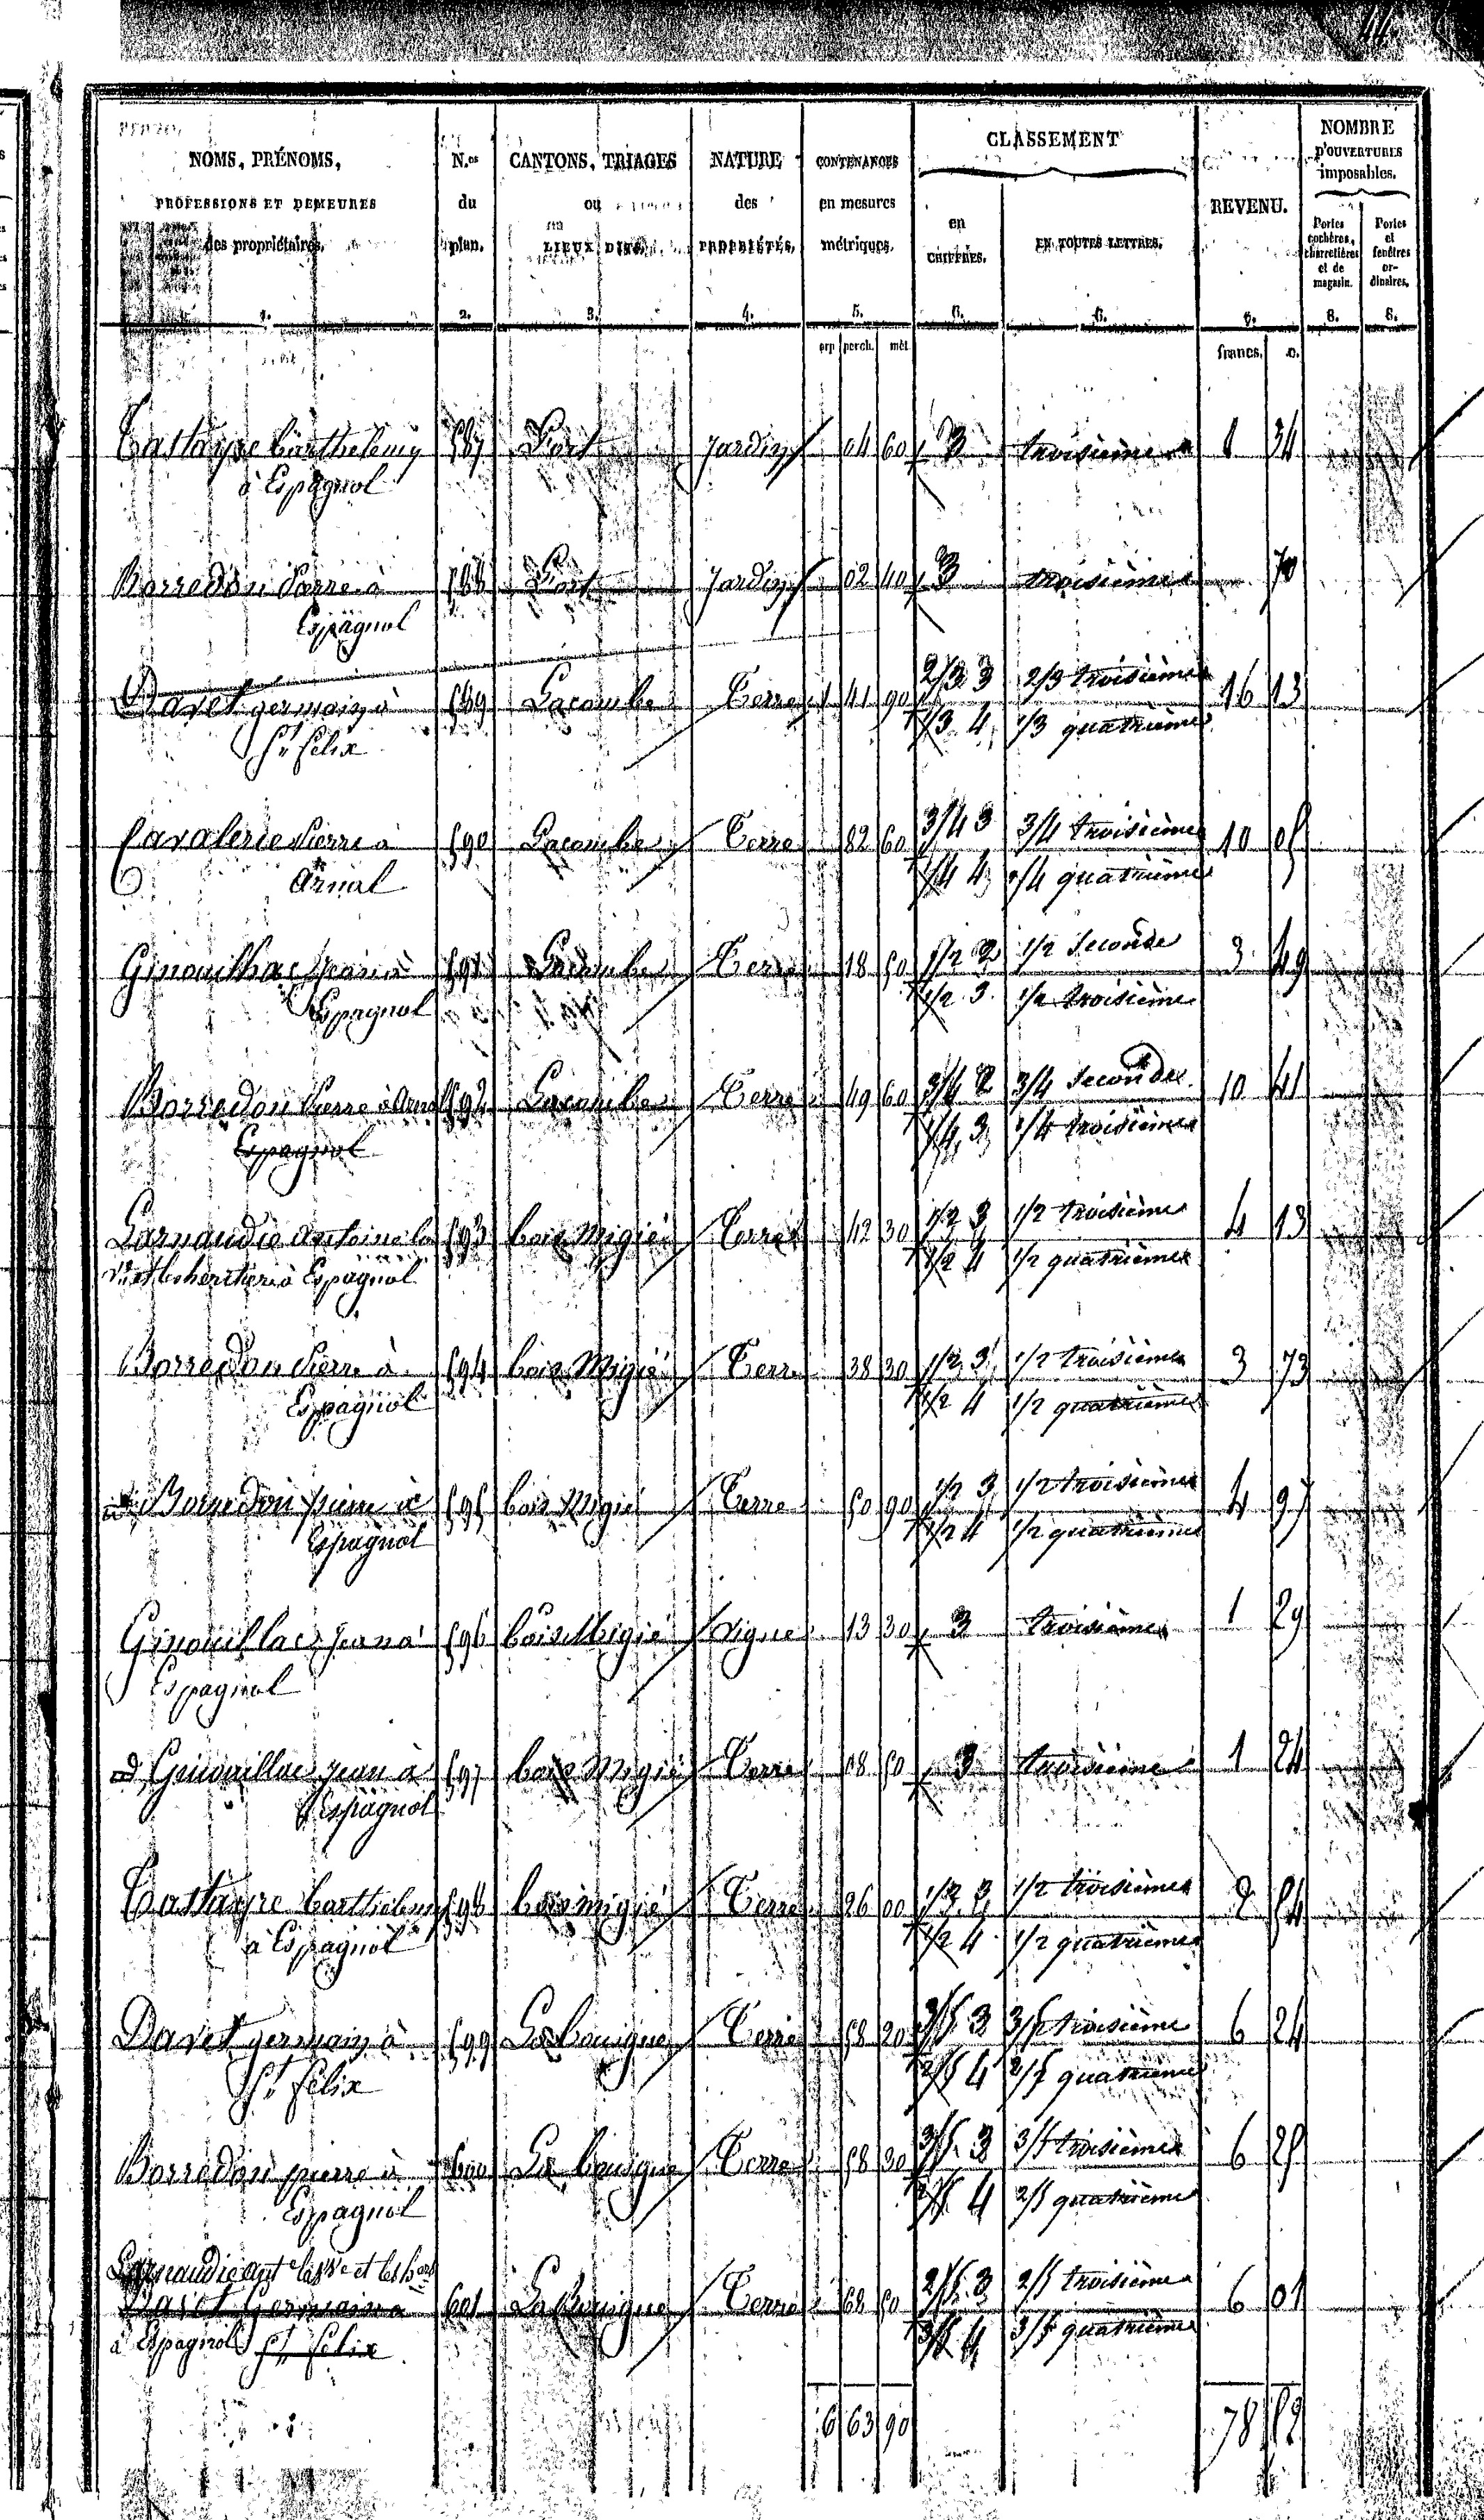 44
NOMS, PRÉNOMS, PROFESSIONS ET DEMEURES des propriétaires. | N.os du plan. | CANTONS, TRIAGES ou LIEUX DITS. | NATURE des PROPRIÉTÉS. | CONTENANCES en mesures métriques. | CLASSEMENT en CHIFFRES. | EN TOUTES LETTRES. | REVENU. | NOMBRE D'OUVERTURES imposables. Portes cochères, charretières et de magasin. | Portes et fenêtres ordinaires.
1. 2. 3. 4. 5. 6. 6. 7. 8. 8.
arp. perch. mèt. francs. c.
Castagne barthelemy 587 Jardin 04 60 3 troisième 1 34
à Espagnol
Borredon Pierre à 588 Jardin 02 40 3 troisième 70
Espagnol
Davet germain à 589 Lacombe Terre 1 41 90 2/3 3 2/3 troisième 16 13
St félix 1/3 4 1/3 quatrième
Cavalerie Pierre à 590 Lacombe Terre 82 60 3/4 3 3/4 troisième 10 05
Arnal 1/4 4 1/4 quatrième
Ginouillac Jean à 591 Lacombe Terre 18 50 1/2 2 1/2 Seconde 3 49
Espagnol 1/2 3 1/2 troisième
Borredon Pierre à Arnal 592 Lacombe Terre 49 60 3/4 2 3/4 Seconde 10 41
Espagnol 1/4 3 1/4 troisième
Larnaudie Antoine la 593 bois Migié Terre 42 30 1/2 3 1/2 troisième 4 13
ve et les heritiers à Espagnol 1/2 4 1/2 quatrième
Borredon Pierre à 594 bois Migié Terre 38 30 1/2 3 1/2 troisième 3 73
Espagnol 1/2 4 1/2 quatrième
Borredon pierre à 595 bois Migié Terre 50 90 1/2 3 1/2 troisième 4 97
Espagnol 1/2 4 1/2 quatrième
Ginouillac Jean à 596 bois Migié Vigne 13 30 3 troisième 1 29
Espagnol
Ginouillac Jean à 597 bois Migié Terre 08 50 3 troisième 1 24
Espagnol
Castagne barthelemy 598 bois migié Terre 26 00 1/2 3 1/2 troisième 2 54
à Espagnol 1/2 4 1/2 quatrième
Davet germain à 599 La bouigue Terre 58 20 3/5 3 3/5 troisième 6 24
St félix 2/5 4 2/5 quatrième
Borredon pierre à 600 La bouigue Terre 58 30 3/5 3 3/5 troisième 6 25
Espagnol 2/5 4 2/5 quatrième
Larnaudie ant.e la ve et les hers
Davet Germain à 601 La Bouigue Terre 68 50 2/5 3 2/5 troisième 6 01
à Espagnol St félix 3/5 4 3/5 quatrième
6 63 90 78